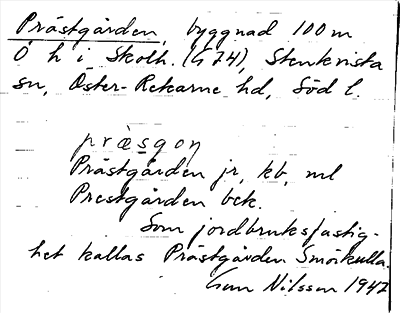 Prästgården, byggnad 100 m
Ö h i Skolh. (G 74), Stenkvista
sn, Öster-Rekarne hd, Söd l.
præsgoṇ
Prästgården jr, kb, ml
Prestgården bek.
Som jordbruksfastig-
het kallas Prästgården Smörkulla.
Gun Nilsson 1947